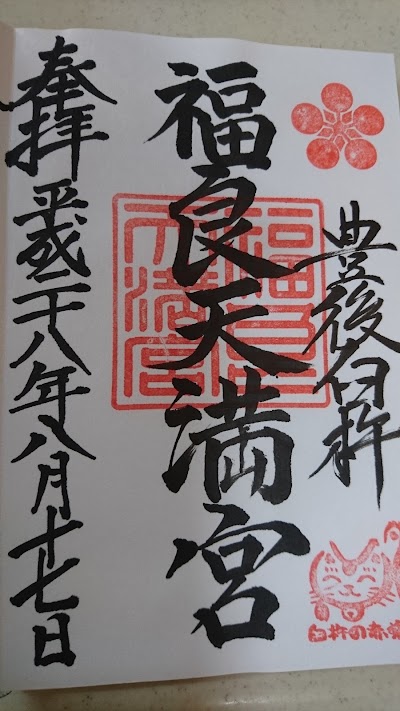 豊後臼杵
福良天満宮
奉拝 平成二十八年八月十七日
福良天満宮
臼杵の赤猫